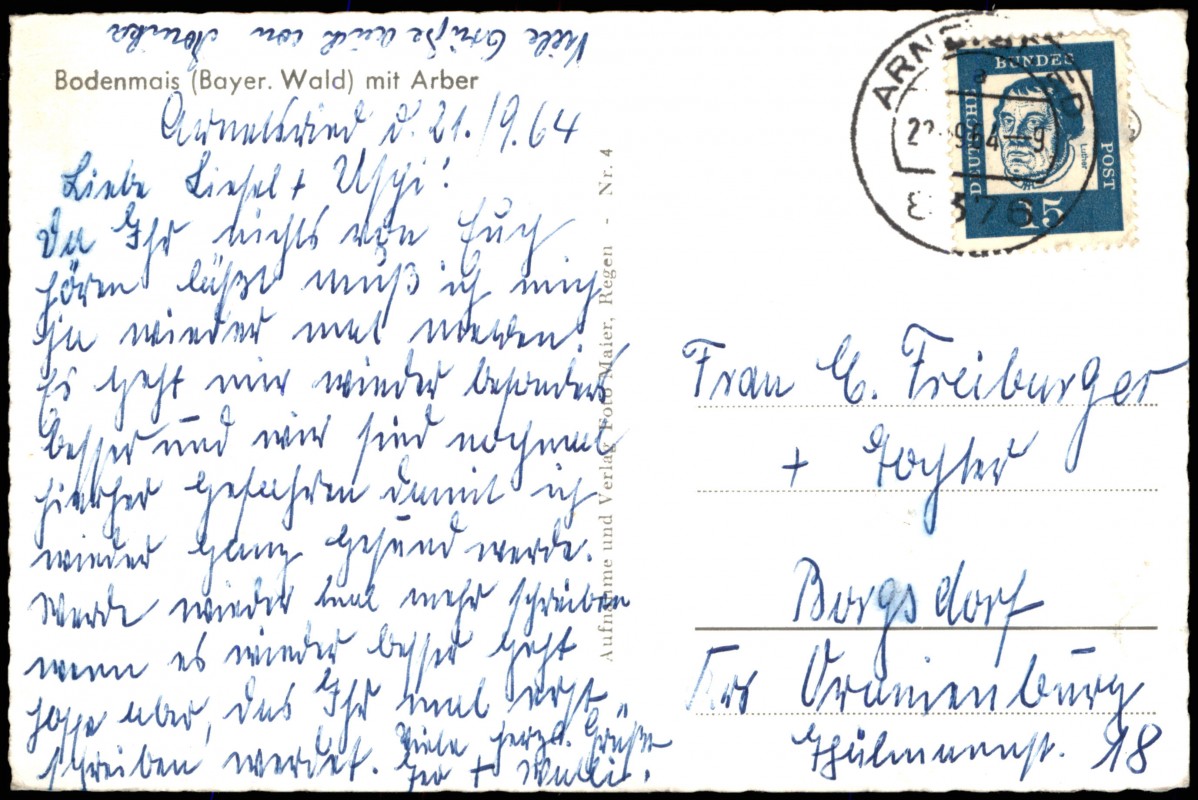 Viele Grüße auch von Monika
Bodenmais (Bayer. Wald) mit Arber
Arnetsried d. 21./9.64
Liebe Liesel + Uschi!
Da Ihr nichts von Euch
hören läßt muß ich mich
ja wieder mal melden.
Es geht mir wieder besonders
besser und wir sind nochmal
hierher gefahren damit ich
wieder ganz gesund werde.
Werde wieder mal mehr schreiben
wenn es wieder besser geht
hoffe aber, das Ihr mal erst
schreiben werdet. Viele herzl. Grüße
+ Walli.
Aufnahme und Verlag Foto Maier, Regen - Nr. 4
ARNETSRIED
a
22.-9.64-9
8376
DEUTSCHE BUNDESPOST
Luther
15
Frau E. Freiburger
+ Tochter
Borgsdorf
Krs Oranienburg
Thälmannst. 18